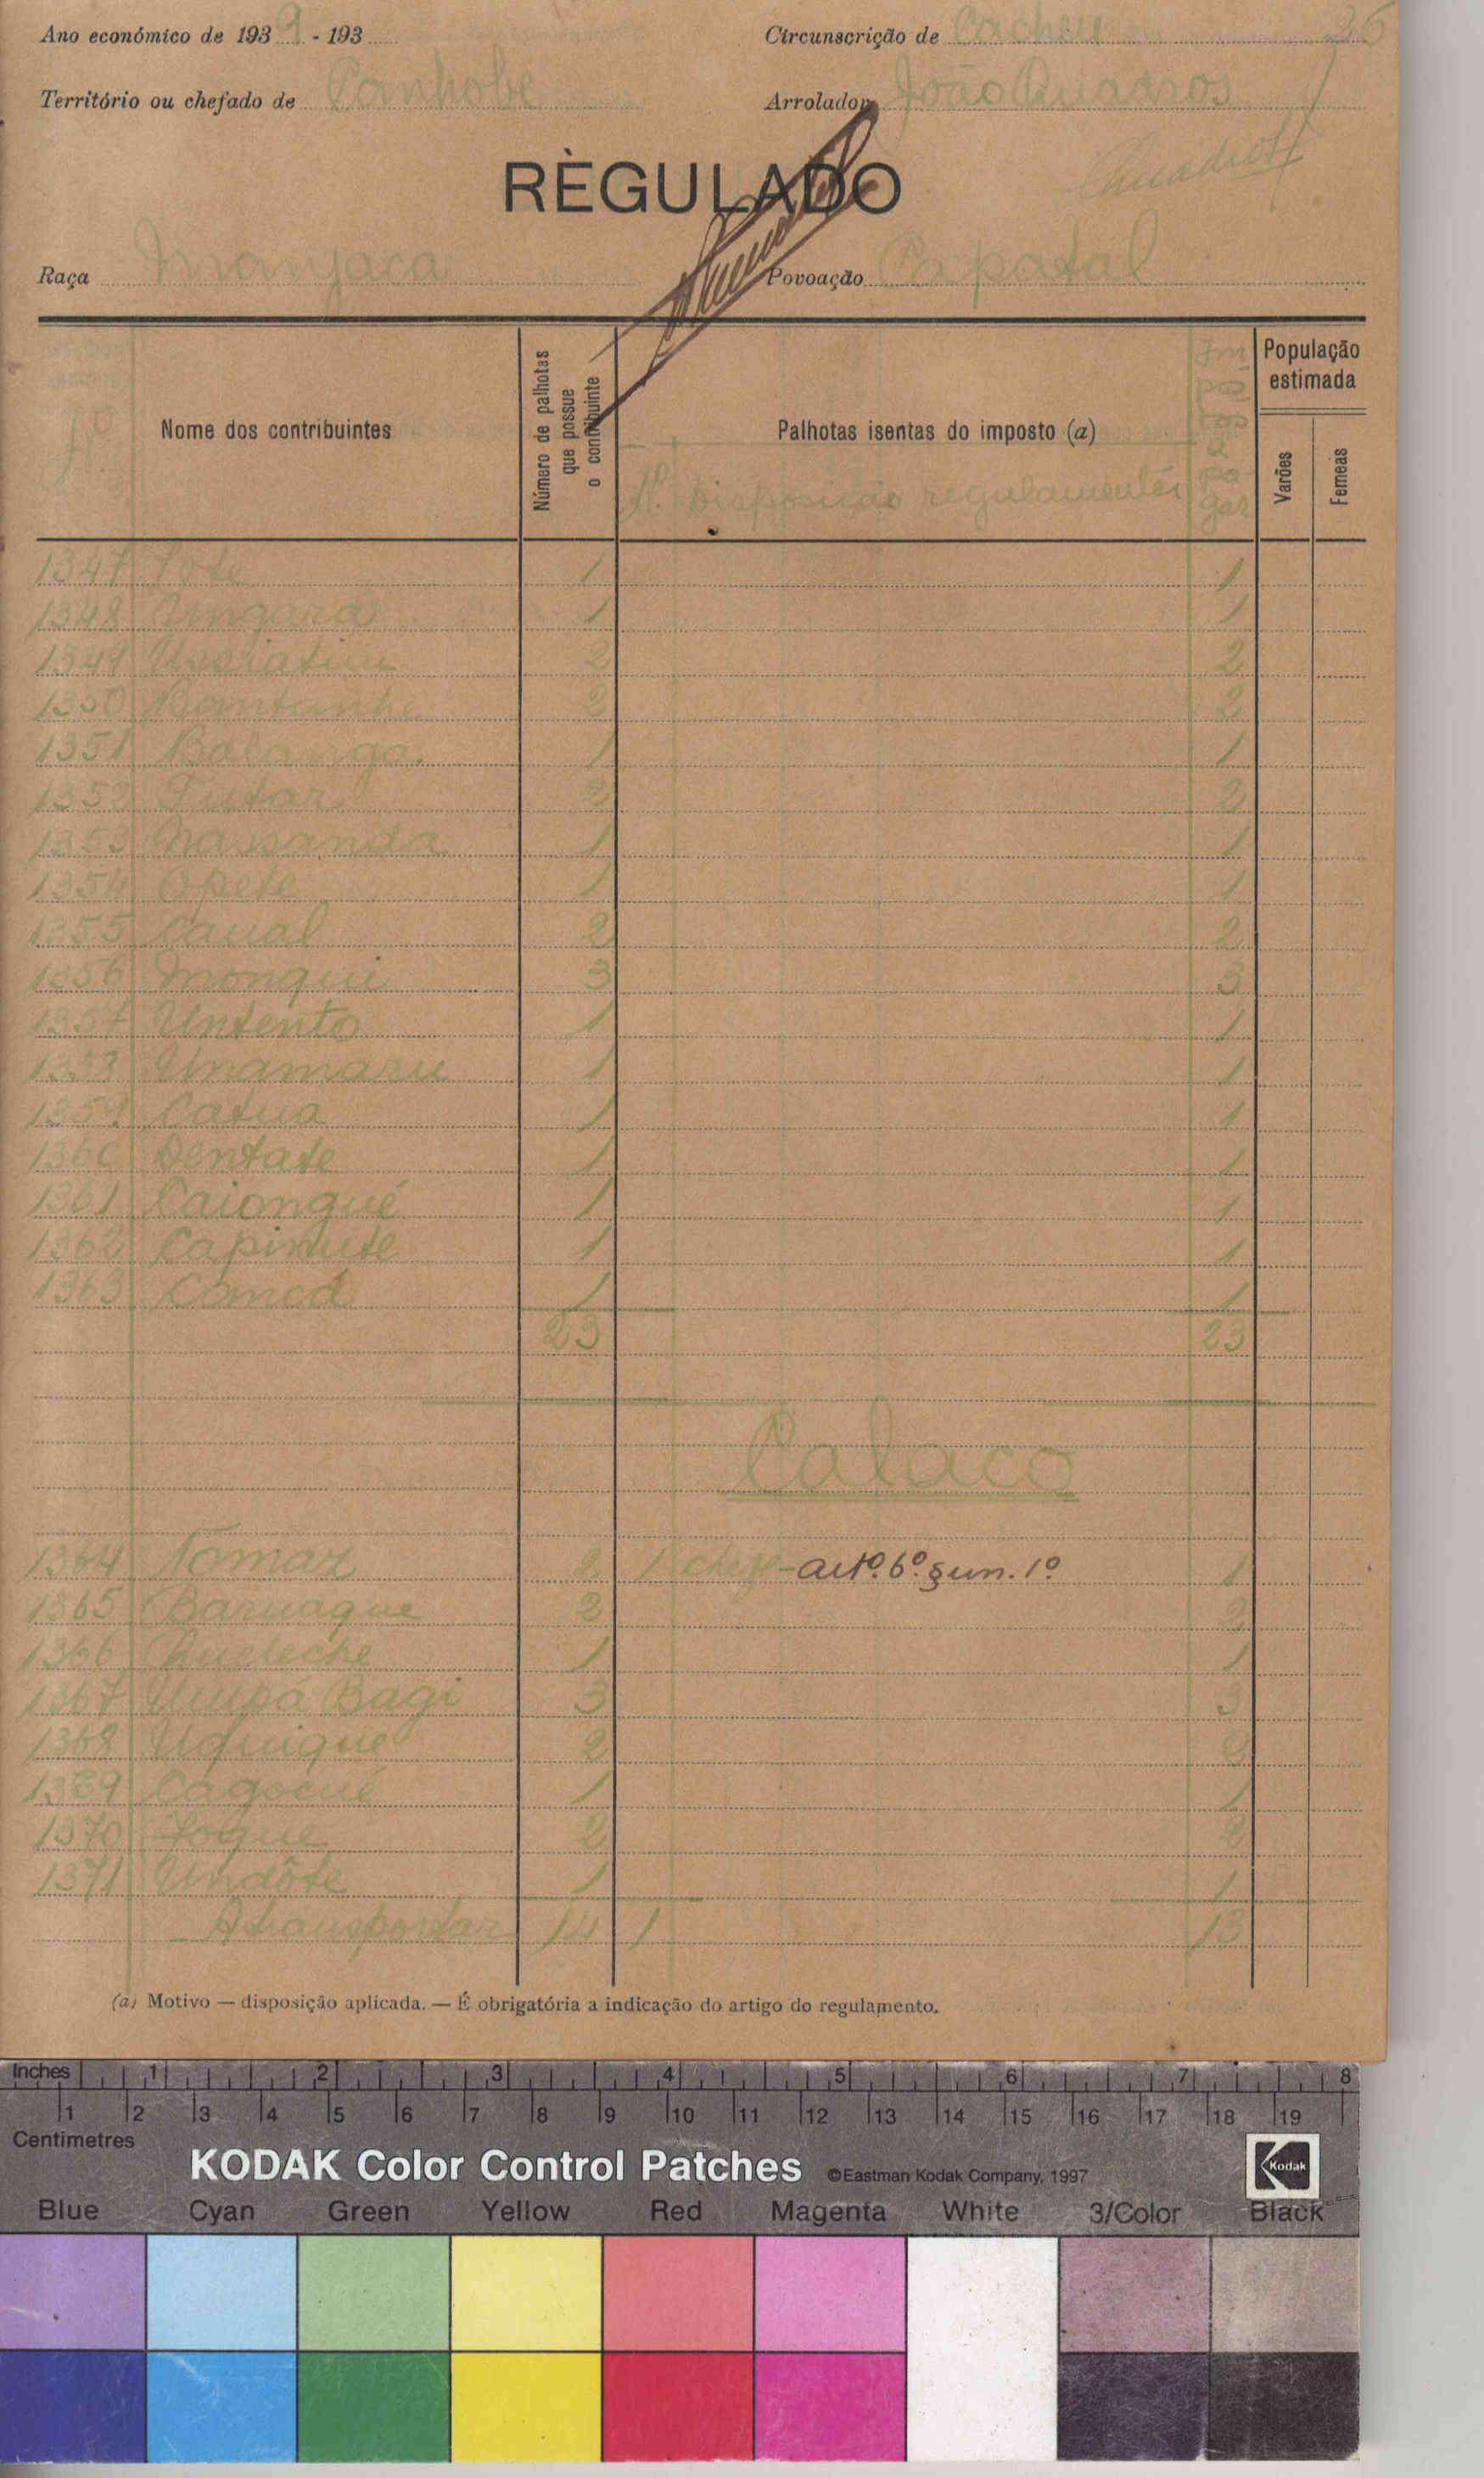 Ano económico de 1939 - 193
Circunscrição de Cacheu 36
Território ou chefado de Panhobe
Arrolador João Quadros
RÈGULADO
Raça Manjaca
Povoação Capatal
Nome dos contribuintes
Número de palhotas que possue o contribuinte
Palhotas isentas do imposto (a)
Nº Disposição regulamentar
Impostos a pagar
População estimada
Varões
Femeas
1347 1 1
1348 Ungara 1 1
1349 2 2
1350 2 2
1351 Balanga 1 1
1352 2 2
1353 Nassanda 1 1
1354 Opete 1 1
1355 Caual 2 2
1356 Monqui 3 3
1357 Untento 1 1
1358 Unamaru 1 1
1359 Catua 1 1
1360 Dentate 1 1
1361 Caiongué 1 1
1362 Capinute 1 1
1363 1 1
23 23
Calaco
1364 Tomaz 2 1 chefe - artº. 6º. § un. 1º 1
1365 Baruaque 2 2
1366 1 1
1367 Bagi 3 3
1368 2 2
1369 Cagocué 1 1
1370 2 2
1371 Undôte 1 1
A transportar 14 1 13
(a) Motivo — disposição aplicada. — É obrigatória a indicação do artigo do regulamento.
Inches 1 2 3 4 5 6 7 8
1 2 3 4 5 6 7 8 9 10 11 12 13 14 15 16 17 18 19
Centimetres
KODAK Color Control Patches ©Eastman Kodak Company, 1997 Kodak
Blue Cyan Green Yellow Red Magenta White 3/Color Black